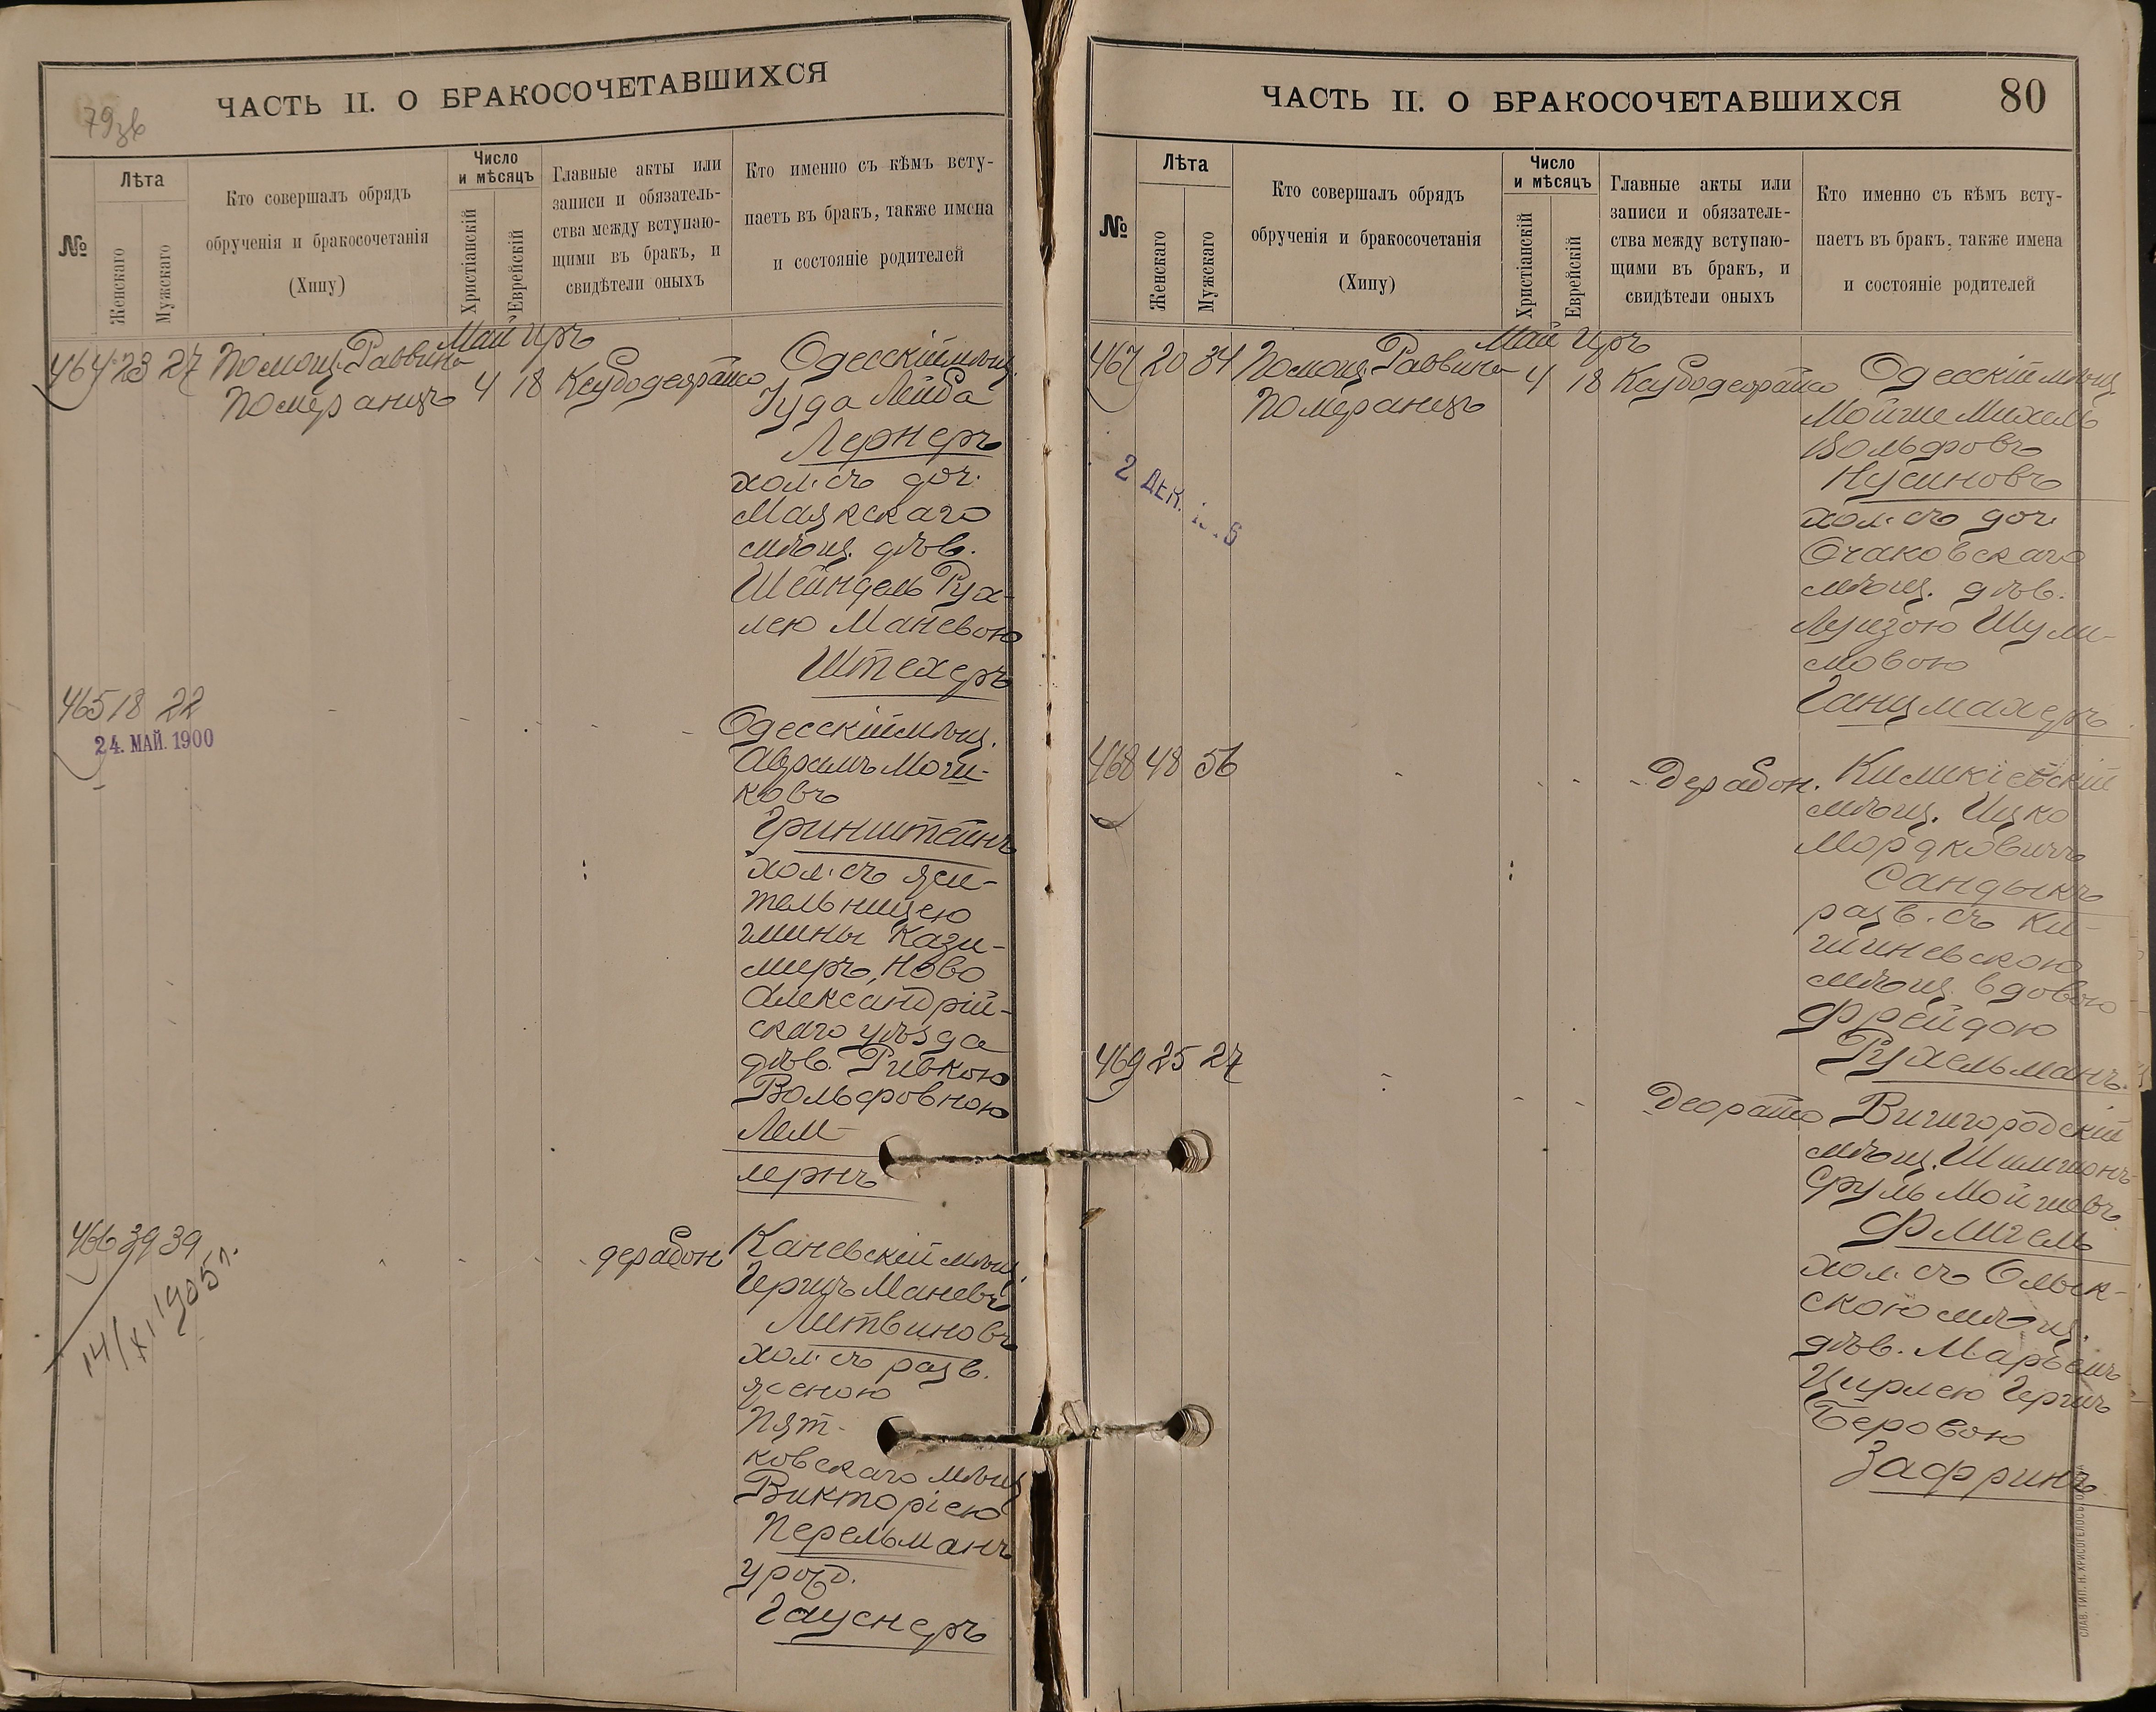 79 зв
ЧАСТЬ II. О БРАКОСОЧЕТАВШИХСЯ
№
Лѣта
Женскаго
Мужскаго
Кто совершалъ обрядъ
обрученія и бракосочетанія
(Хипу)
Число
и мѣсяцъ
Христіанскій
Еврейскій
Главные акты или
записи и обязатель-
ства между вступаю-
щими въ бракъ, и
свидѣтели оныхъ
Кто именно съ кѣмъ всту-
паетъ въ бракъ, также имена
и состояніе родителей
Май Iиръ
464 23 27 Помощ. Раввина 4 18 Ксубодеорайсо Одесскій мѣщ.
Померанцъ
Iуда Лейба
Лернеръ
хол. съ доч.
Маякскаго
мѣщ. дѣв.
Шейндель Руа-
лею Маневою
Штехеръ
465 18 22
24. МАЙ. 1900
Одесскій мѣщ.
Аврамъ Мош-
ковъ
Гринштейнъ
хол. съ жи-
тельницею
гмины Кази-
миръ, Ново
Александрій-
скаго уѣзда
дѣв. Ривкою
Вольфовною
Лем-
лернъ
466 39 39
14/XI 1905 г.
дерабон
Каневскій мѣщ.
Гершъ Маневъ
Литвиновъ
хол. съ разв.
женою
Пят-
ковскаго мѣщ
Викторіею
Перельманъ
урожд.
Гауснеръ
ЧАСТЬ II. О БРАКОСОЧЕТАВШИХСЯ
80
№
Лѣта
Женскаго
Мужскаго
Кто совершалъ обрядъ
обрученія и бракосочетанія
(Хипу)
Число
и мѣсяцъ
Христіанскій
Еврейскій
Главные акты или
записи и обязатель-
ства между вступаю-
щими въ бракъ, и
свидѣтели оныхъ
Кто именно съ кѣмъ всту-
паетъ въ бракъ, также имена
и состояніе родителей
Май Iиръ
467 20 34 Помощ. Раввина 4 18 Ксубодеорайсо Одесскій мѣщ
Померанцъ
2 ДЕК.
Мойше Михель
Вольфовъ
Нусиновъ
хол. съ доч.
Очаковскаго
мѣщ. дѣв.
Луизою Шули-
мовою
Ганцмахеръ
468 48 56
Дерабон.
мѣщ. Ицко
Мордковичъ
Сандыкъ
разв. съ Ки-
шиневскою
мѣщ. вдовою
Фрейдою
Рухельманъ
469 25 27
Деорайсо Вишгородскій
мѣщ. Шимшонъ
Сруль Мойшевъ
Флигель
хол. съ Олык-
скою мѣщ.
дѣв. Марьемъ
Цирлею Гершъ
Беровою
Зафринъ